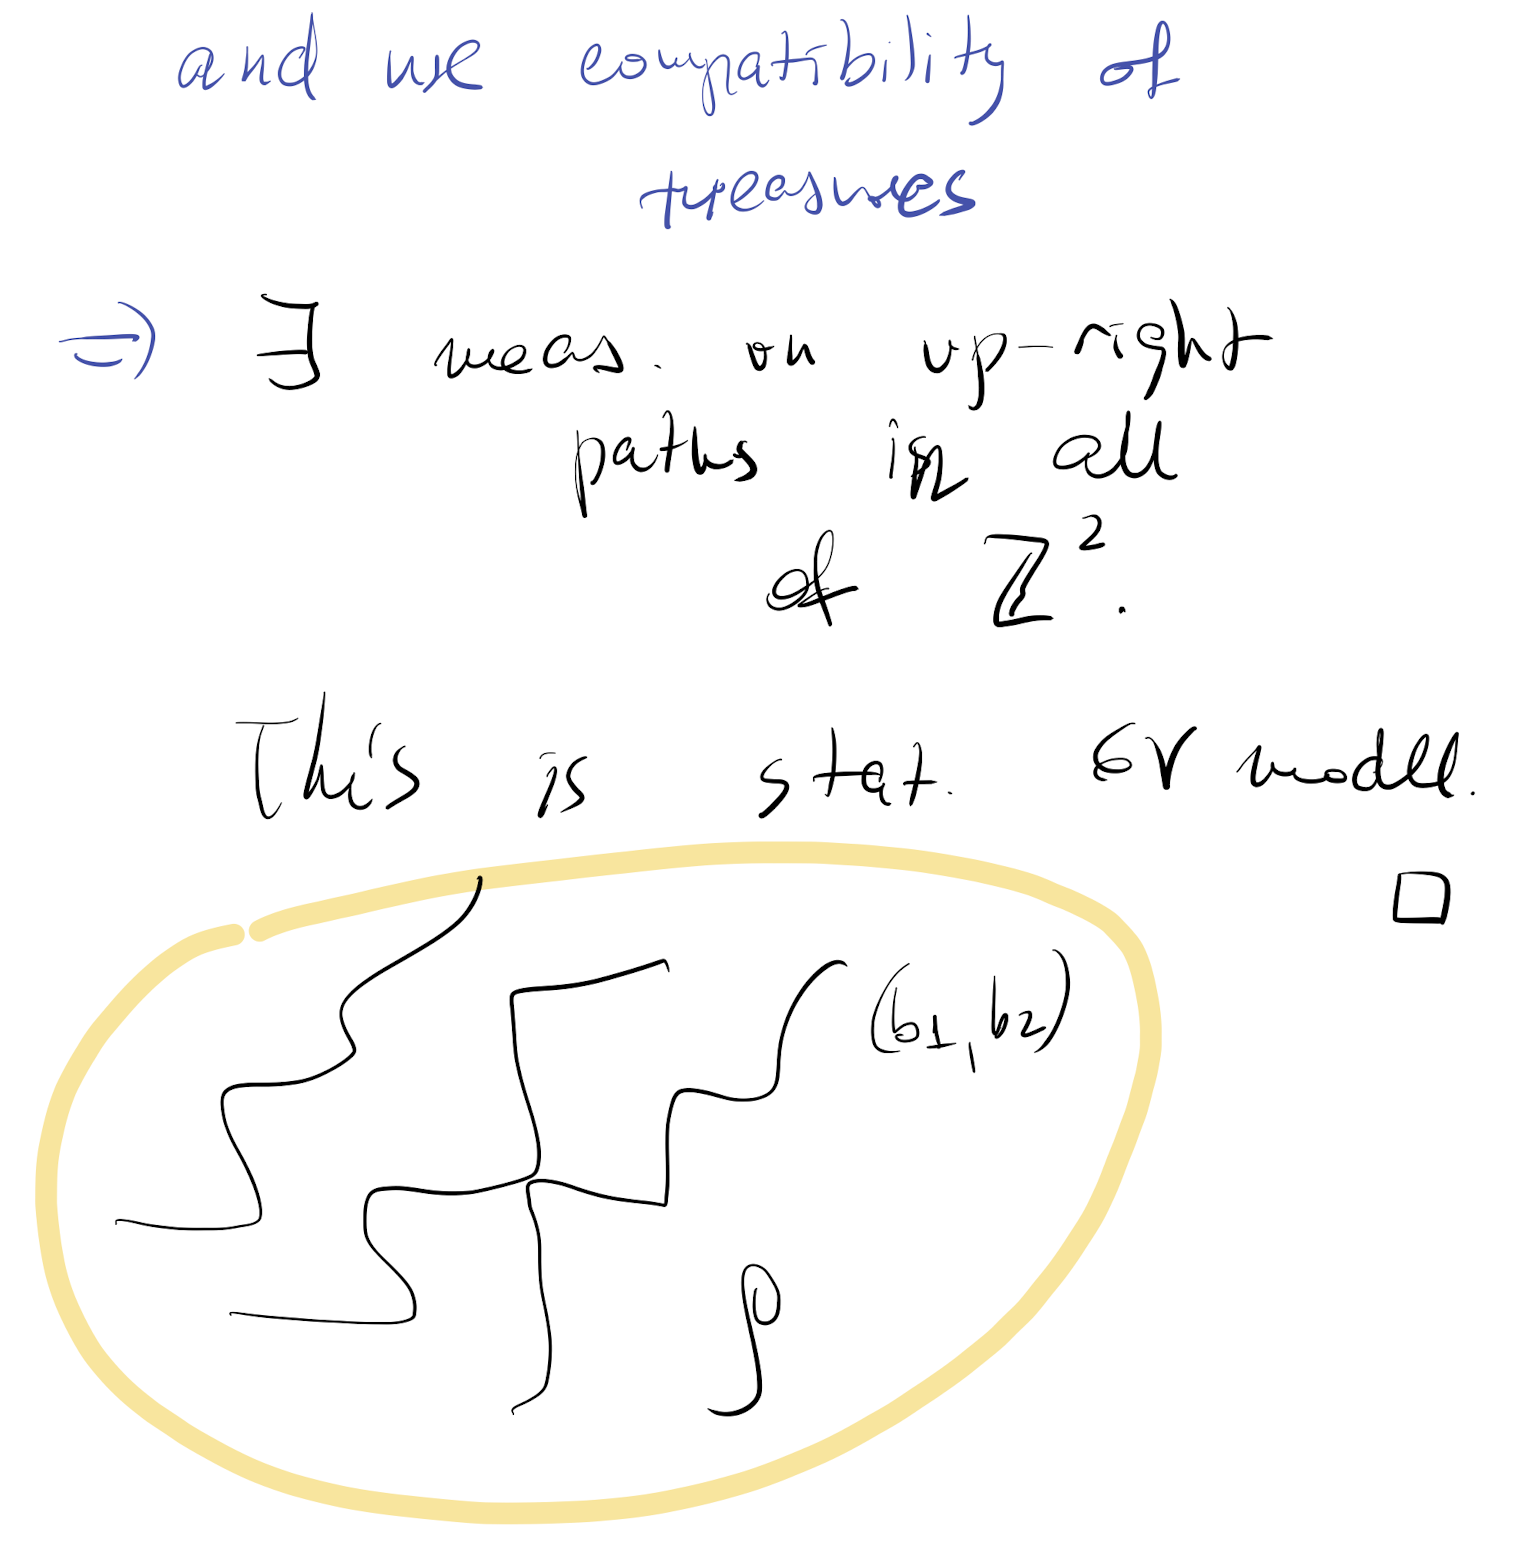 and use compatibility of
measures
⇒ ∃ meas. on up-right
paths in all
of ℤ².
This is stat. 6V model.
□
(b1, b2)
ρ